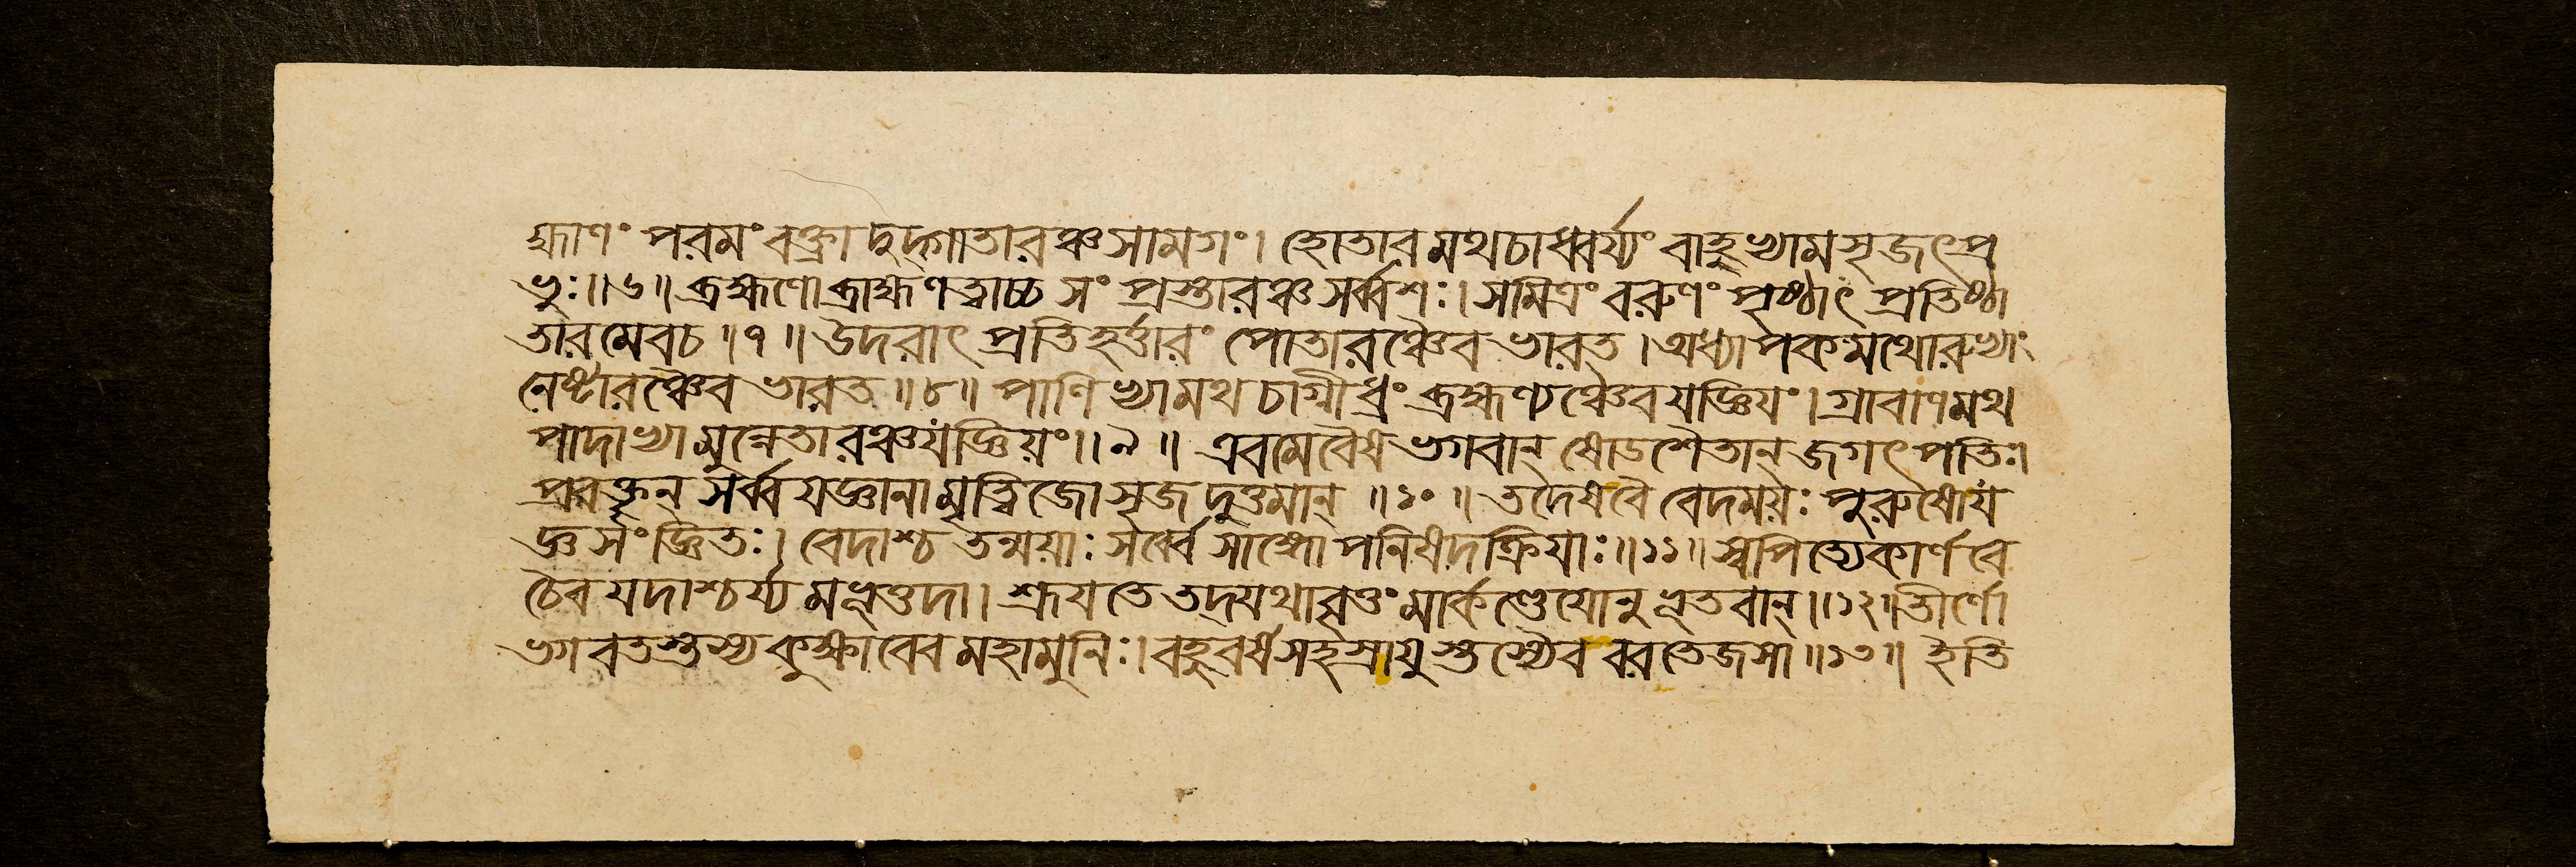 হ্মাণং পরমং বক্ত্রাদুদ্গাতারঞ্চসামগং। হোতারমথচাধ্বর্য্যং বাহুভ্যামসৃজৎপ্র
ভুঃ॥৬॥ ব্রহ্মণোব্রাহ্মণত্বাচ্চ সং প্রস্তারঞ্চসর্ব্বশঃ। সমিত্রং বরুণং পৃষ্ঠাৎ প্রতিষ্ঠা
তারমেবচ॥৭॥ উদরাৎ প্রতিহর্ত্তারং পোতারঞ্চৈব ভারত। অধ্যাপকমথোরুভ্যাং
নেষ্টারঞ্চৈব ভারত॥৮॥ পাণিভ্যামথচাগ্নীধ্রং ব্রহ্মণ্যঞ্চৈবযজ্ঞিয়ং। গ্রাবাণমথ
পাদাভ্যামুন্নেতারঞ্চযজ্ঞিয়ং॥৯॥ এবমেবৈষভগবান্ ষোডশৈতান্ জগৎপতিঃ।
প্রবক্তৃন্ সর্ব্বযজ্ঞানামৃত্বিজোসৃজদুত্তমান্॥১০॥ তদেষবৈ বেদময়ঃ পুরুষোয
জ্ঞসংজ্ঞিতঃ। বেদাশ্চ তন্ময়াঃ সর্ব্বে সাঙ্গোপনিষদক্রিয়াঃ॥১১॥ স্বপিত্যেকার্ণবে
চৈব যদাশ্চর্য্যমভূত্তদা। শ্রূযতে তদ্যথাবৃত্তং মার্কণ্ডেযোনুভূতবান্॥১২॥ জীর্ণো
ভগবতস্তস্যকুক্ষাবেব মহামুনিঃ। বহুবর্ষসহস্রাযুস্তস্যৈব বরতেজসা॥১৩॥ ইতি